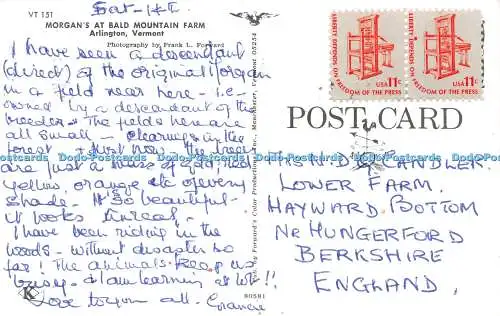 Sat - 1st
VT 151
MORGAN'S AT BALD MOUNTAIN FARM
Arlington, Vermont
Photography by Frank L. Forward
I have seen a descendant
(direct) of the original Morgan
in a field near here - i.e-
owned by a descendant of the
breeder. The fields here are
all small - clearings in the
forest & just now the trees
are just a mass of gold, red
yellow, orange etc of every
shade. It is so beautiful -
it looks unreal.
I have been riding in the
woods - without disaster so
far! The animals keep us
busy - & I am learning a lot!!
Love to you all.
K
80581
Color Productions, Inc., Manchester, Vermont 05254
LIBERTY DEPENDS ON FREEDOM OF THE PRESS
USA 11c
LIBERTY DEPENDS ON FREEDOM OF THE PRESS
USA 11c
POST CARD
CANDLER.
LOWER FARM,
HAYWARD BOTTOM
NR HUNGERFORD
BERKSHIRE
ENGLAND.
Dodo-Postcards Dodo-Postcards Dodo-Postcards Dodo-Postcards